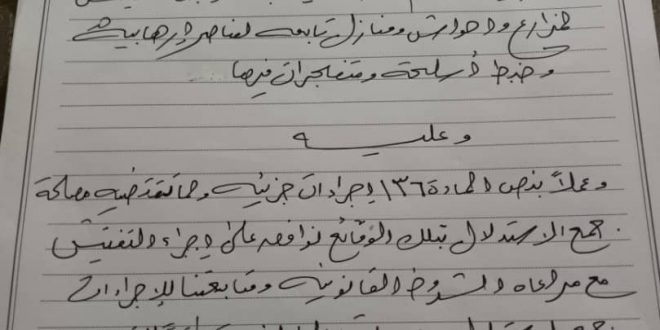 لمزارع واحواش ومنازل تابعه لعناصر إرهابيه
وضبط أسلحة ومتفجرات فيها
وعليه
وعملاً بنص المادة ١٣٦ إجراءات جزئيه وما تقتضيه مصلحة
جمع الاستدلال بتلك الوقائع نوافق على إجراء التفتيش
مع مراعاه الشروط القانونيه ومتابعتنا للإجراءات